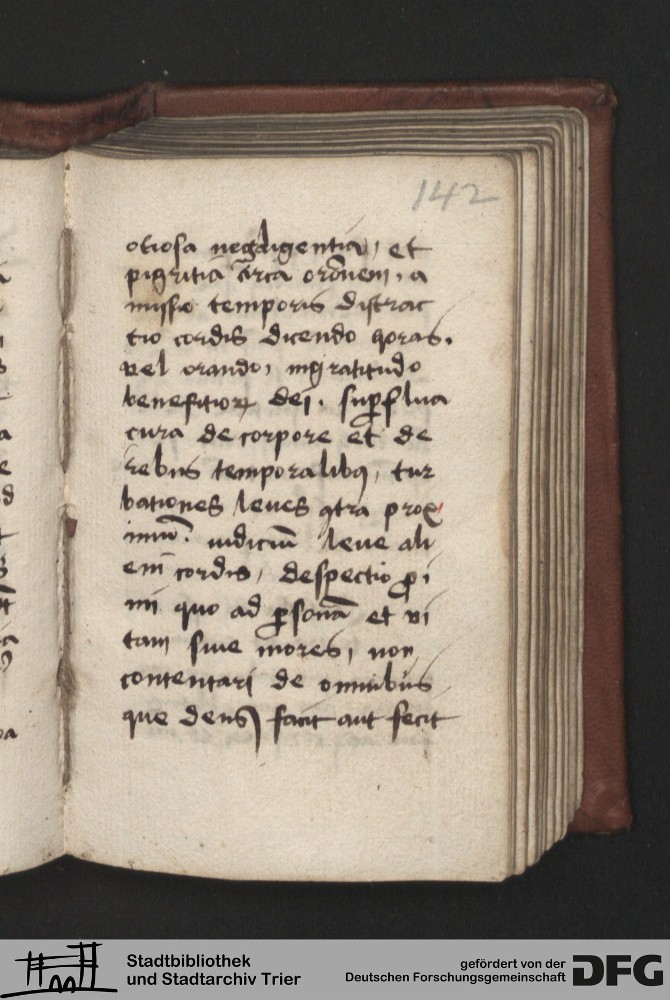 142
otiosa negligentia, et
pigritia c̄irca ordinem, a
missio temporis distrac
tio cordis dicendo horas,
vel orando, ingratitudo
benefitioꝝ dei, suꝑflua
cura de corpore et de
rebus temporalibꝰ, tur
bationes leues ꝯtra prox
imū. iudiciū leue ali
eni cordis, despectio ꝓxi
mi quo ad ꝑsonā et vi
tam siue mores, non
contentari de omnibus
que deus facit aut fecit
Stadtbibliothek
und Stadtarchiv Trier
gefördert von der
Deutschen Forschungsgemeinschaft
DFG